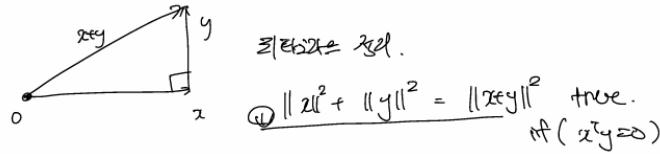 x+y
y
피타고라스 정리.
0
x
① ||x||² + ||y||² = ||x+y||² true.
if ( xᵀy=0 )